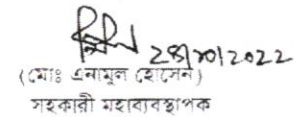 28/10/2022
(মোঃ এনামুল হোসেন)
সহকারী মহাব্যবস্থাপক